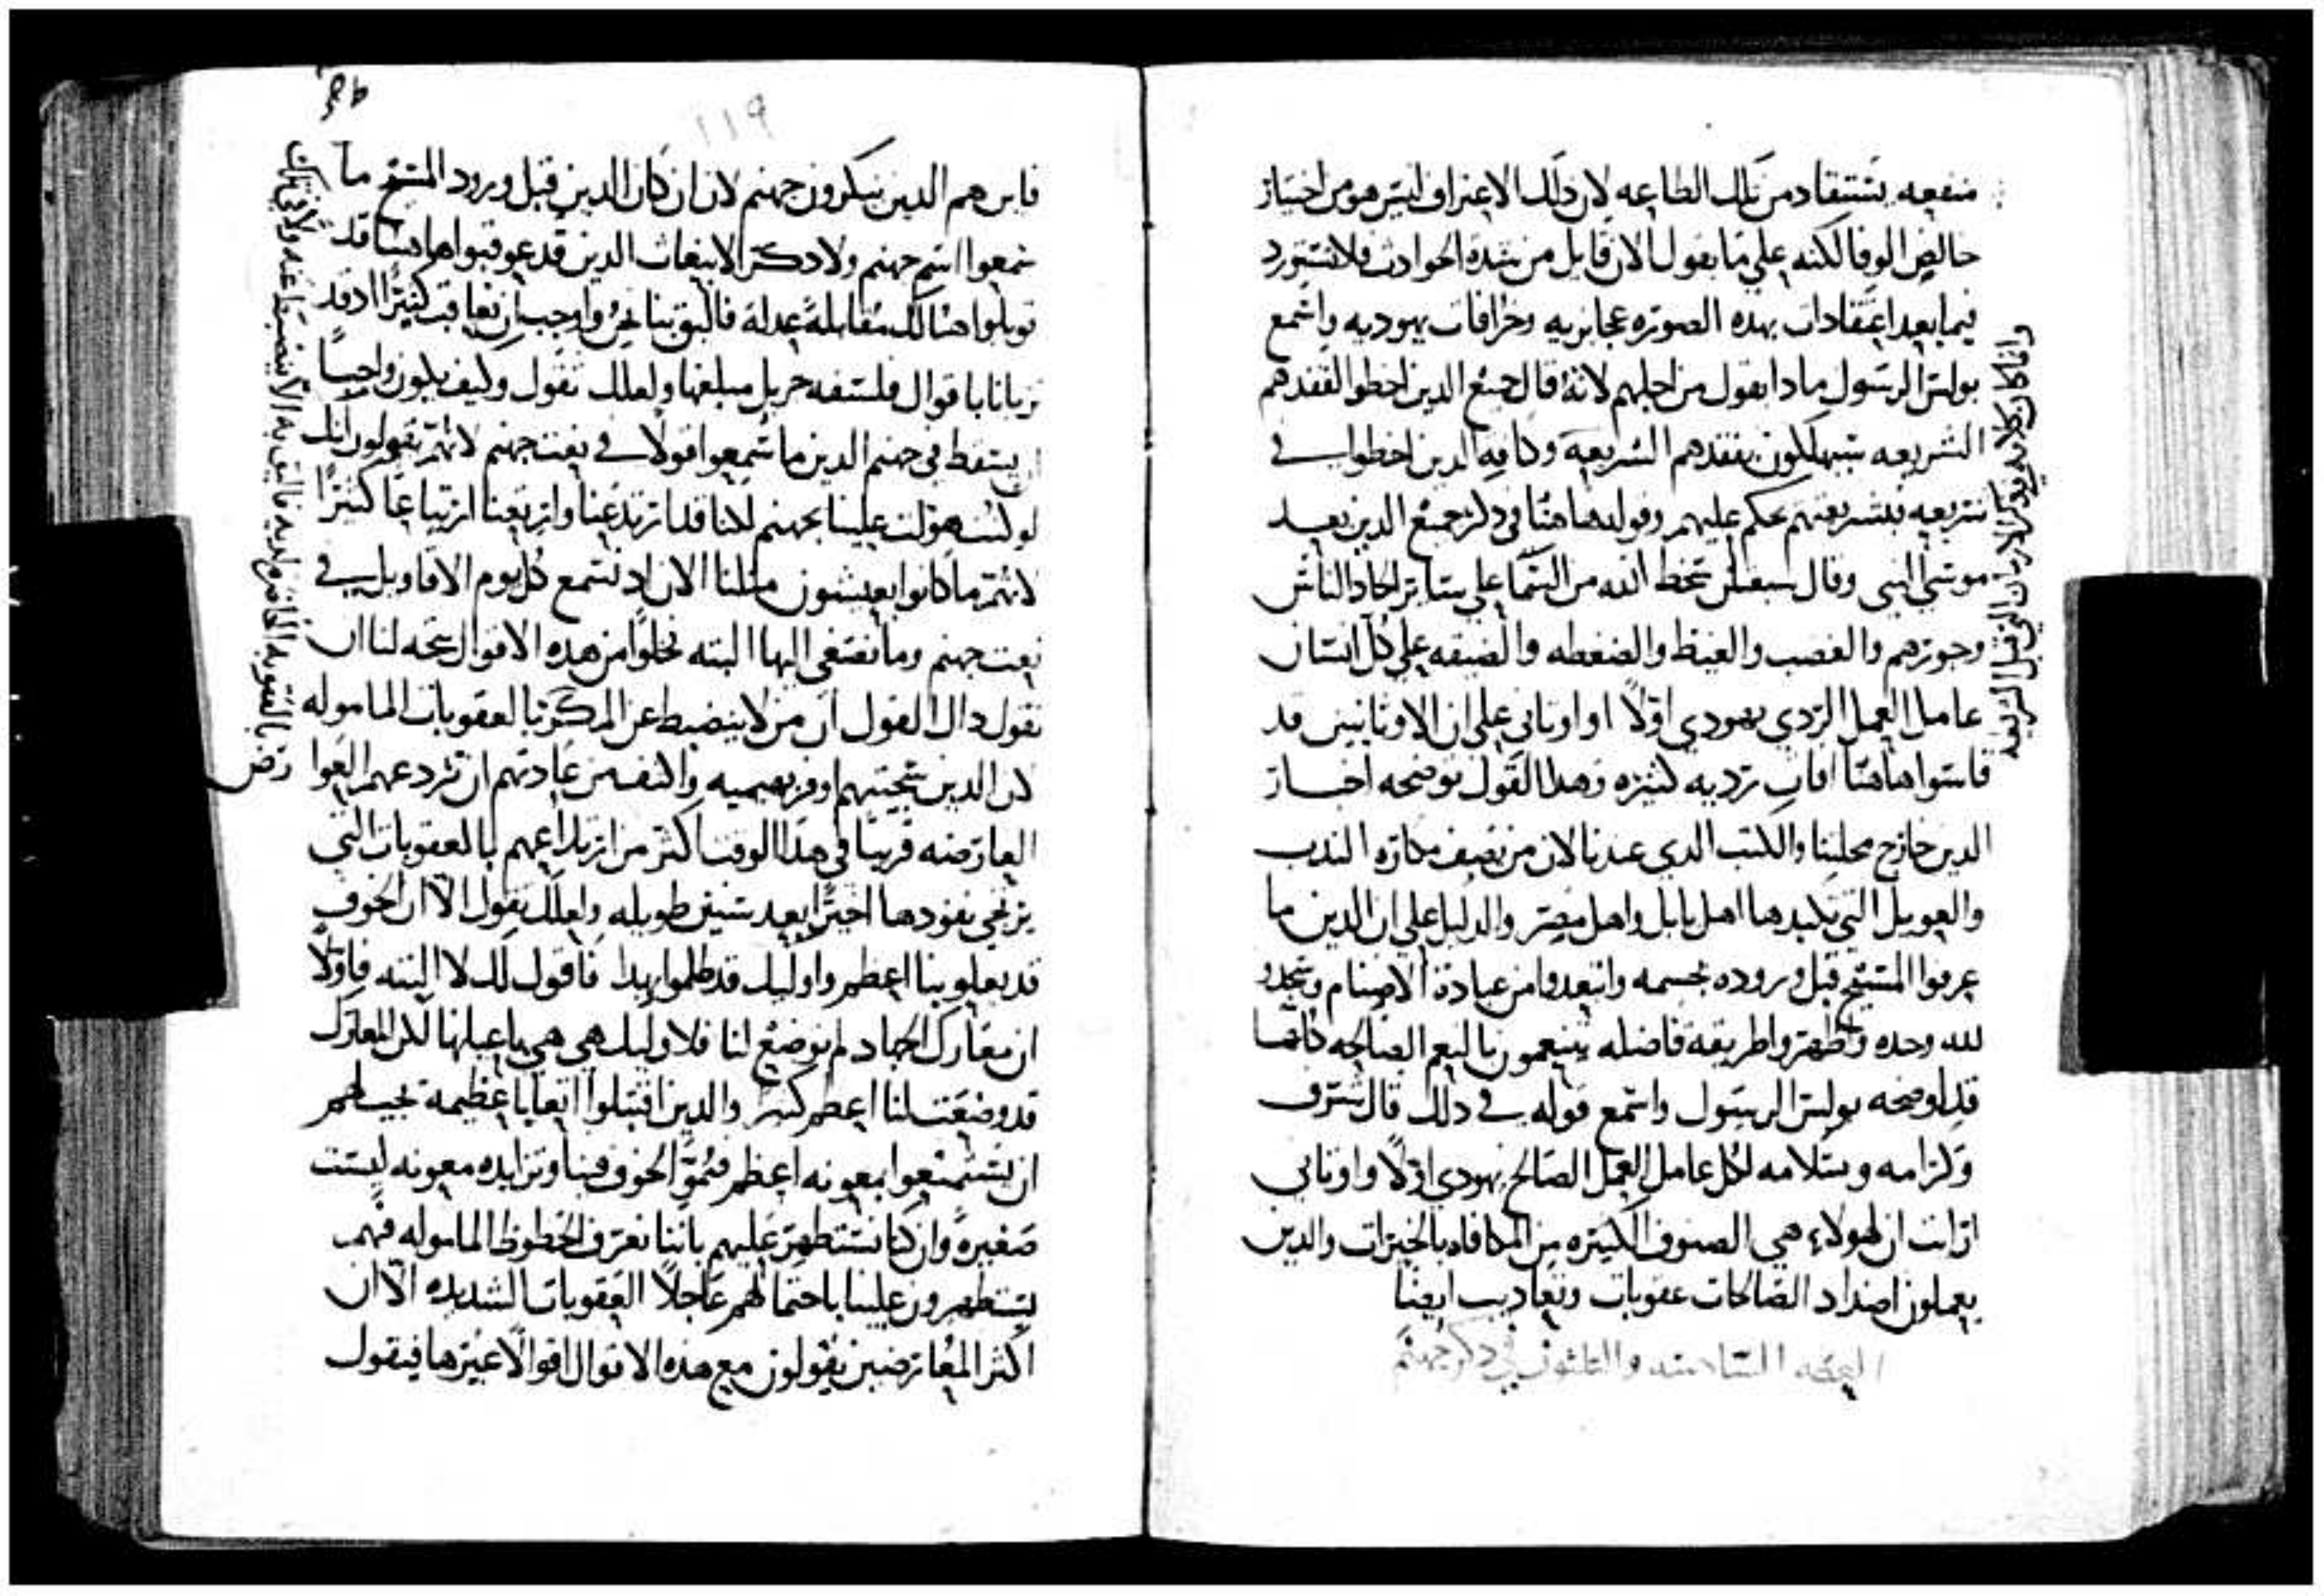 منفعه تستفاد من تلك الطاعه لان دلك الاعتراف ليس هو من اختيار
خالص الوفا لكنه علي ما يقول الان قايل من شدة الحوادث فلا نستورد
فيما بعد اعتقادات بهده الصوره عجايزيه وخرافات يهوديه واسمع
بولس الرسول مادا يقول من اجلهم لانه قال جميع الدين اخطوا لفقدهم
الشريعه سيهلكون بفقدهم الشريعه وكافه الدين اخطوا في
شريعه فبشريعتهم يحكم عليهم وقوله هاهنا في دكر جميع الدين بعد
موسي النبي وقال سيعلن سخط الله من السما علي ساير الحاد الناس
وجورهم والغضب والغيظ والضغطه والضيقه علي كل انسان
عامل العمل الردي يهودي اولا او اوناني علي ان الاونانيين قد
قاسوا هاهنا افات رديه كثيره وهدا القول توضحه اخبار
الدين خارج محلتنا والكتب الدي عندنا الان من يصف مكاره الندب
والعويل التي تكبدها اهل بابل واهل مصر والدليل علي ان الدين ما
عرفوا المسيح قبل وروده بجسمه وابتعدوا من عبادة الاصنام وسجدوا
لله وحده واظهروا طريقه فاضله يتنعمون بالنعم الصالحه كلها
قد اوضحه بولس الرسول واسمع قوله في دلك قال شرف
وكرامه وسلامه لكل عامل العمل الصالح يهودي اولا واوناني
ارانت ان لهولاء هي الصنوف الكثيره من المكافاه بالخيرات والدين
يعملون اضداد الصالحات عقوبات وتعاديب ايضا
العظه السادسه والثلثون في دكر جهنم
وانما كان كلامه يدكر الازمان التي قبل الشريعه
119
فاين هم الدين ينكرون جهنم لان ان كان الدين قبل ورود المسيح ما
سمعوا اسم جهنم ولا دكر الانبعاث الدين قد عوقبوا هاهنا قد
قوبلوا هناك مقابلة عدله فاليق بنا نحن واوجب ان نعاقب كثيرا اد قد
ربانا باقوال فلسفه جزيل مبلغها ولعلك تقول وكيف يكون واجبا
ان يسقط في جهنم الدين ما سمعوا قولا في نعت جهنم لانهم يقولون انك
لو كنت هولت علينا بجهنم لكنا قد ارتدعنا وارتعنا ارتياعا كثيرا
لانهم ما كانوا يعيشون مثلنا الان اد نسمع كل يوم الاقاويل في
نعت جهنم وما نصغي اليها البته فخلوا من هده الاقوال يتجه لنا ان
نقول داك القول ان من لا ينضبط عن المنكر بالعقوبات الماموله
لان الدين سجيتهم اوفر بهيميه واكثف من عادتهم ان تردعهم البلوا
العارضه قريبا في هدا الوقت اكثر من ارتداعهم بالعقوبات التي
يرتجي نفودها اخيرا بعد سنين طويله ولعلك تقول الا ان الخوف
قد يعلو بنا اعظم واوليك قد ظلموا بهدا فاقول لك لا البته فاولا
ان معارك الجهاد لم توضع لنا فلاوليك هي هي باعيانها لكن المعارك
قد وضعت لنا اعظم كثيرا والدين اقتبلوا اتعابا عظيمه يجب لهم
ان يستمتعوا بمعونه اعظم فنمو الخوف فينا وتزايده معونه ليست
صغيرة وان كنا نستظهر عليهم باننا نعرف الحظوظ الماموله فهم
يستظهرون علينا باحتمالهم عاجلا العقوبات الشديده الا ان
اكثر المعارضين يقولون مع هده الاقوال اقوالا غيرها فيقول